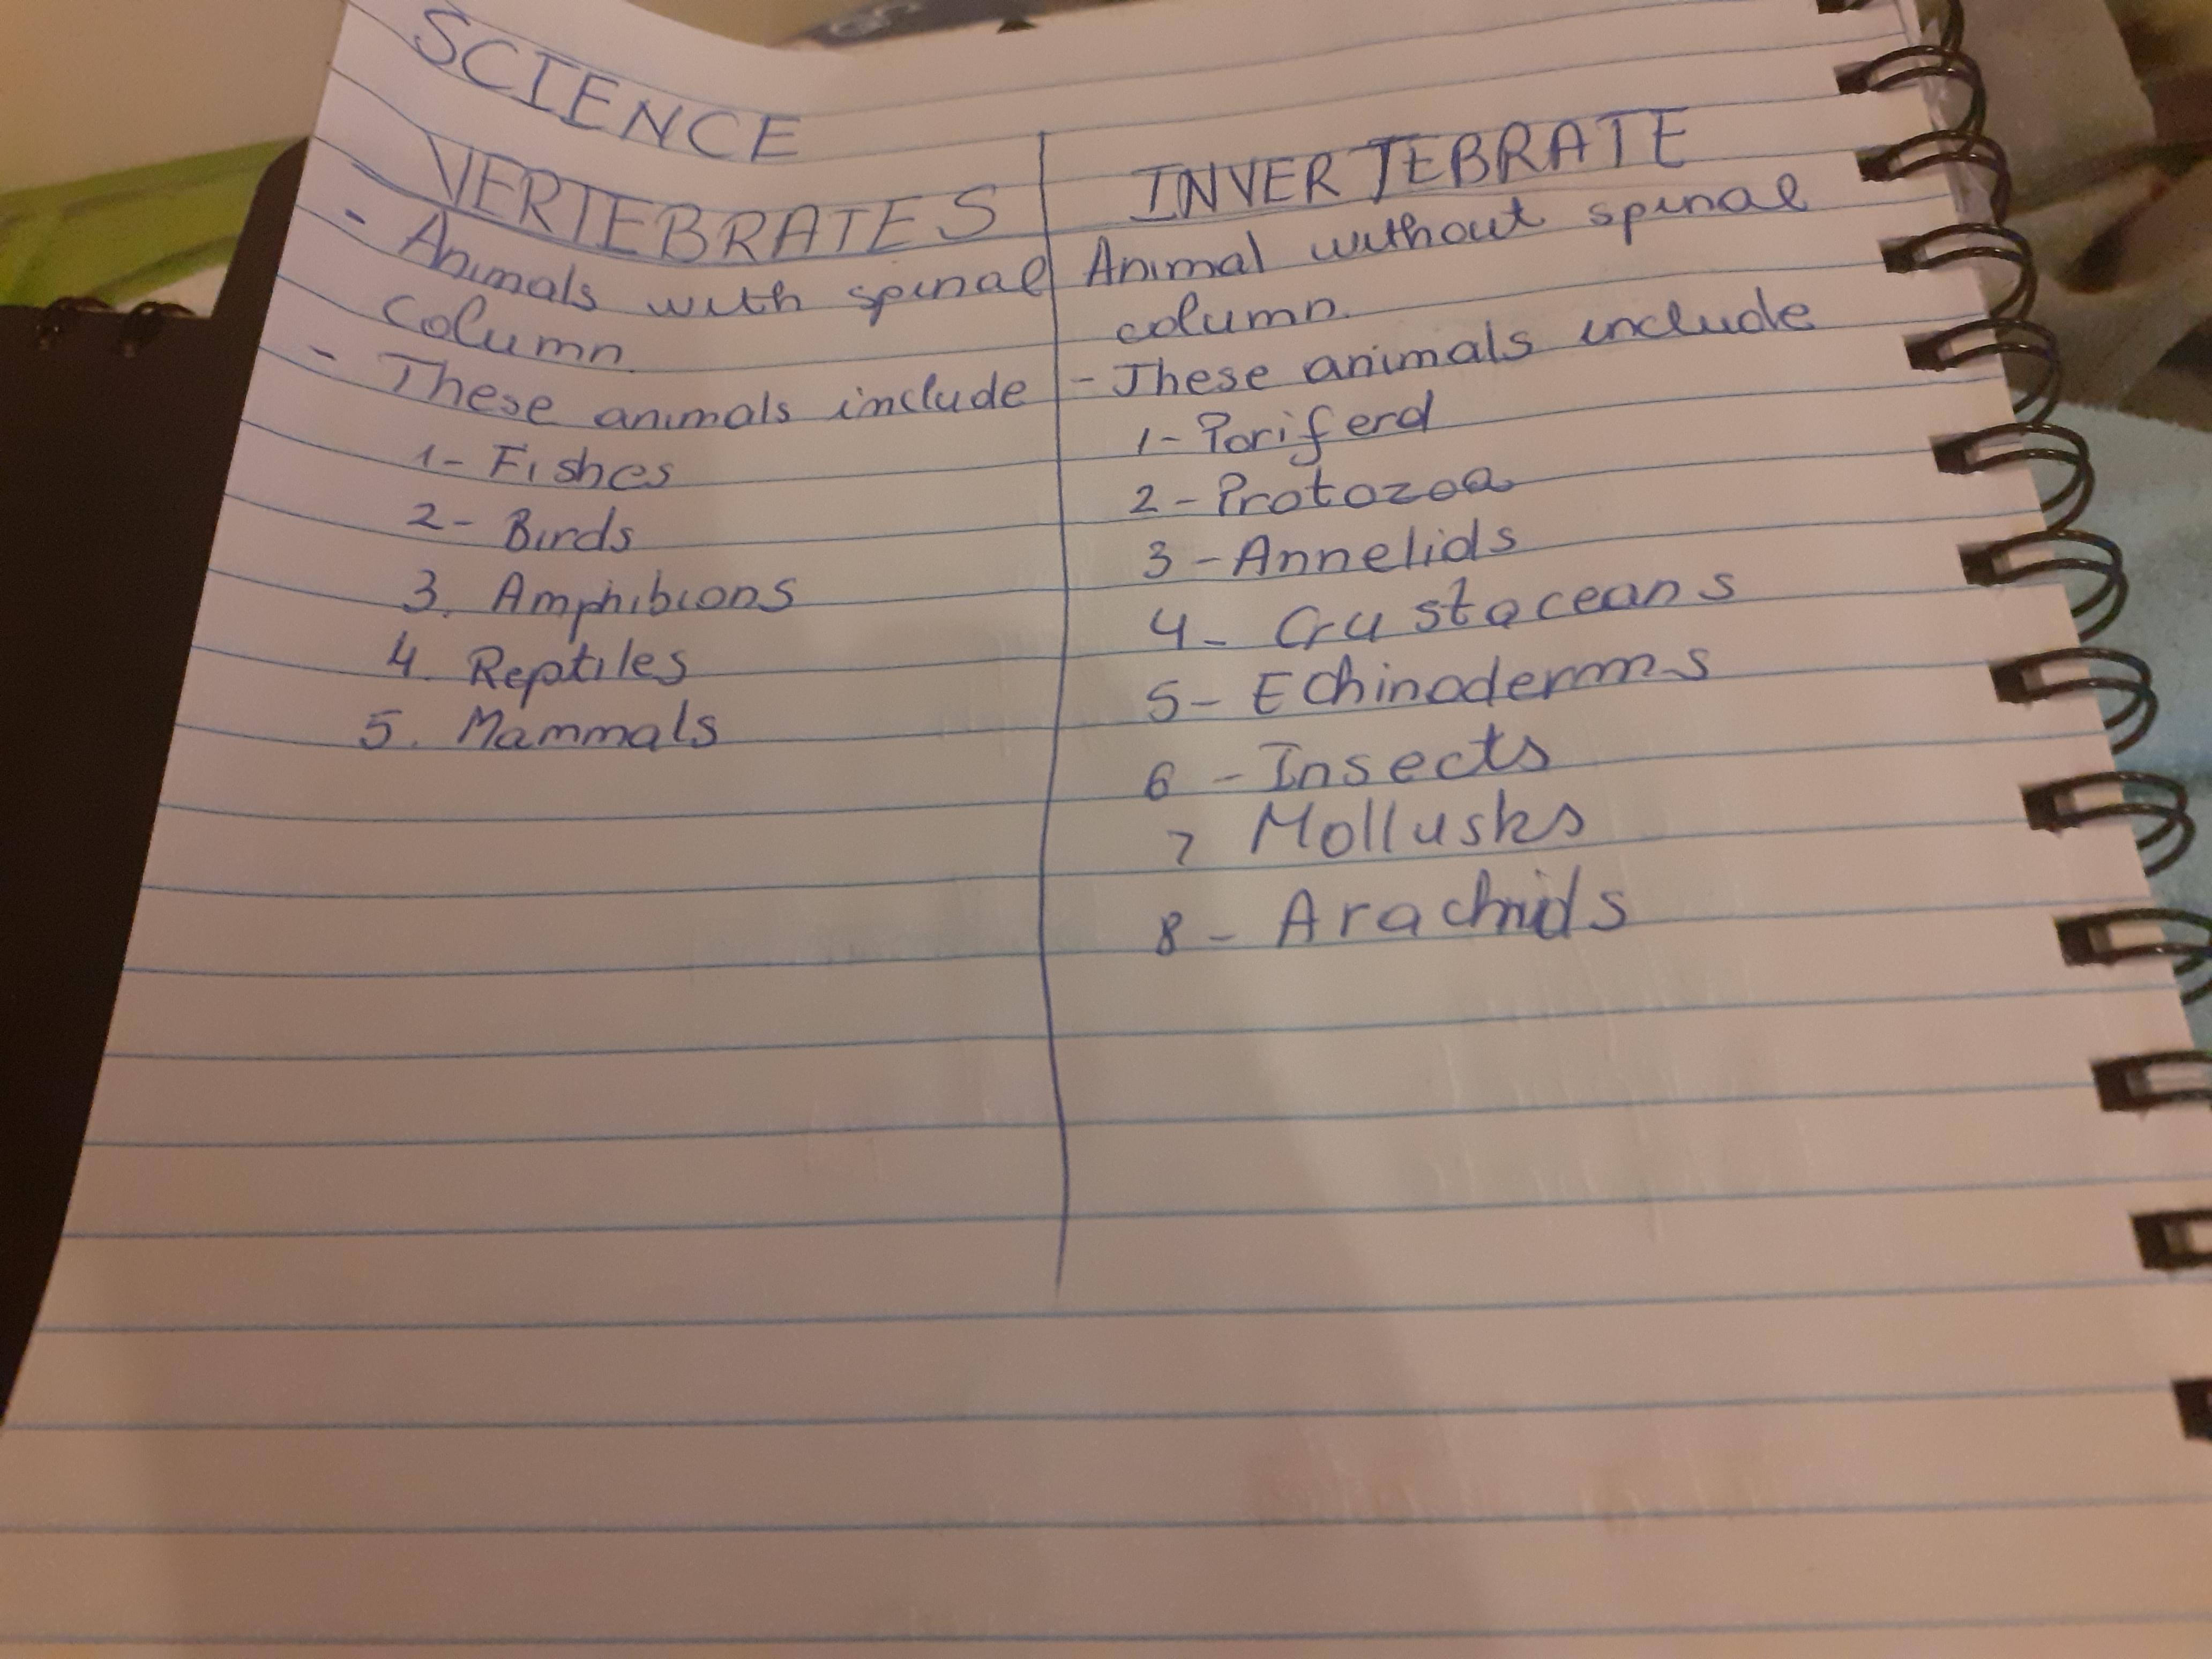 SCIENCE
VERTEBRATES
- Animals with spinal
column.
- These animals include
1- Fishes
2- Birds
3. Amphibions
4. Reptiles
5. Mammals
INVERTEBRATE
Animal without spinal
column.
- These animals include
1- Poriferd
2- Protozoa
3 - Annelids
4- Crustaceans
5- Echinoderms
6 - Insects
7 Mollusks
8 - Arachnids